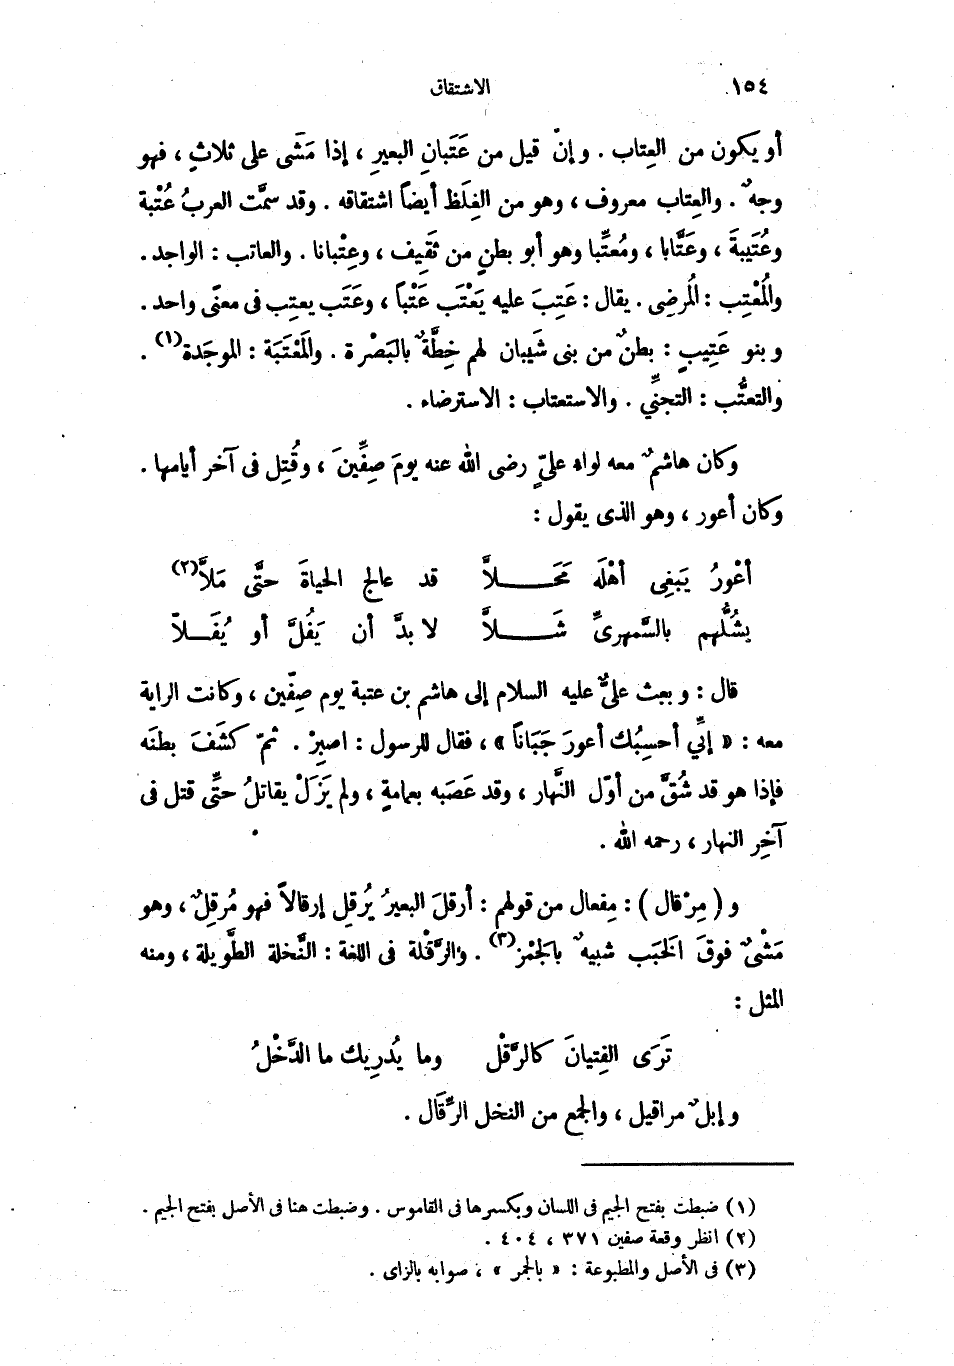 ١٥٤ الاشتقاق
أو يكون من العِتاب . وإنْ قيل من عَتَبانِ البعيرِ ، إذا مَشَى على ثلاثٍ ، فهو
وجهٌ . والعِتاب معروف ، وهو من الغِلَظ أيضاً اشتقاقه . وقد سمَّت العربُ عُتْبة
وعُتَيبةَ ، وعَتَّابا ، ومُعتِّبا وهو أبو بطنٍ من ثَقِيف ، وعِتْبانا . والعاتب : الواجد .
والمُعْتِب : المُرضِى . يقال : عَتِبَ عليه يَعْتَب عَتْباً ، وعَتَب يعتِب فى معنًى واحد .
وبنو عَتِيبٍ : بطنٌ من بنى شَيبان لهم خِطَّةٌ بالبَصْرة . والمَعْتَبَة : الموجَدة(١) .
والتعتُّب : التجنِّي . والاستعتاب : الاسترضاء .
وكان هاشمٌ معه لواء علىٍّ رضى الله عنه يومَ صِفِّينَ ، وقُتِل فى آخر أيامها .
وكان أعور ، وهو الذى يقول :
أعْورُ يَبغِى أهْلَه مَحَــــلاَّ قد عالج الحياةَ حتَّى مَلاَّ(٢)
يشُلُّهم بالسَّمهرىِّ شَــــلاَّ لا بدَّ أن يَفُلَّ أو يُفَــلاّ
قال : وبعث علىٌّ عليه السلام إلى هاشم بن عتبة يوم صِفّين ، وكانت الراية
معه : « إنِّي أحسِبُك أعورَ جَبَاناً » ، فقال للرسول : اصبِرْ . ثمّ كشَفَ بطنَه
فإذا هو قد شُقَّ من أوّل النَّهار ، وقد عَصَبه بعمامةٍ ، ولم يَزَلْ يقاتلُ حتَّى قتل فى
آخِر النهار ، رحمه الله .
و ( مِرْقال ) : مِفعال من قولهم : أرقلَ البعيرُ يُرقِل إرقالاً فهو مُرقِلٌ ، وهو
مَشْىٌ فوقَ الخَبَب شبيهٌ بالجَمْز(٣) . والرَّقْلة فى اللغة : النَّخلة الطَّويلة ، ومنه
المثل :
تَرَى الفِتيانَ كالرَّقْل وما يُدرِيك ما الدَّخْلُ
وإبلٌ مراقيل ، والجمع من النخل الرِّقَال .
(١) ضبطت بفتح الجيم فى اللسان وبكسرها فى القاموس . وضبطت هنا فى الأصل بفتح الجيم .
(٢) انظر وقعة صفين ٣٧١ ، ٤٠٤ .
(٣) فى الأصل والمطبوعة : « بالجمر » ، صوابه بالزاى .